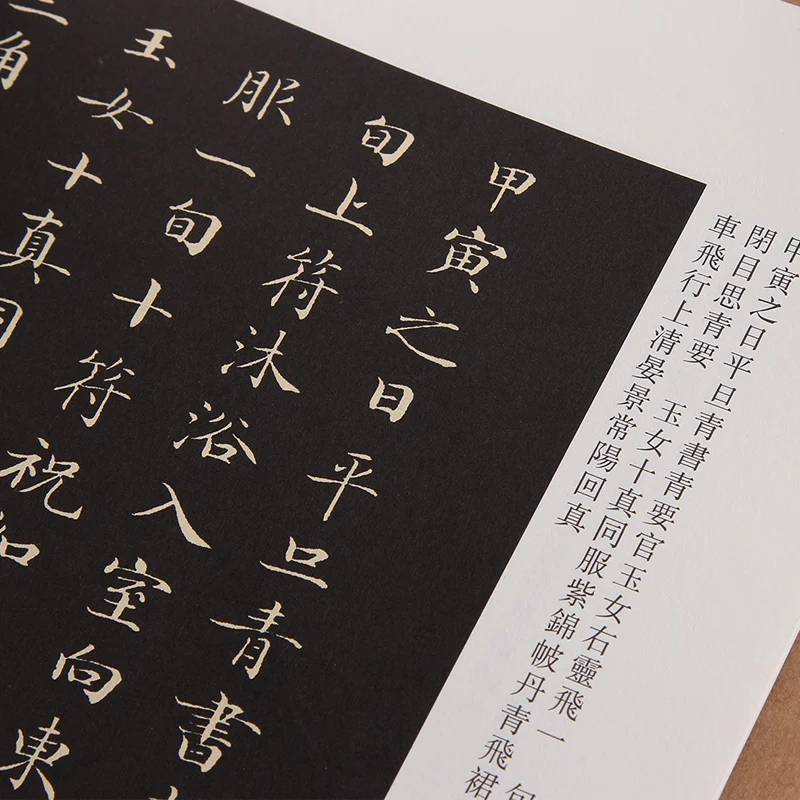 甲寅之日平旦青書青要官玉女右靈飛一旬
閉目思青要 玉女十真同服紫錦帔丹青飛裙
車飛行上清晏景常陽回真
甲寅之日平旦青書
旬上符沐浴入室向東
服一旬十符祝
玉女十真同
角